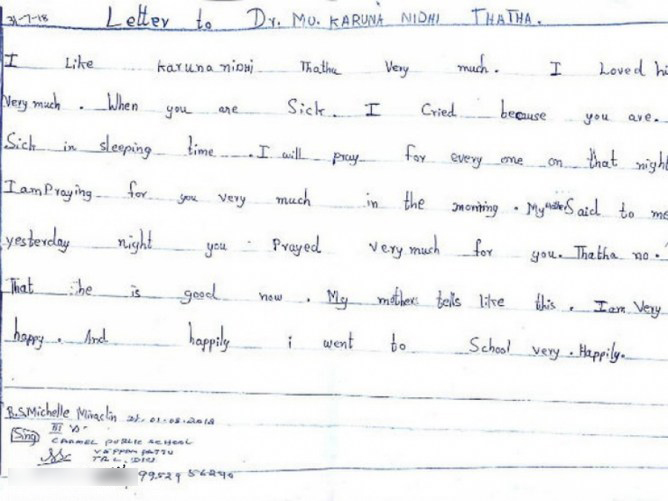 31-7-18 Letter to Dr. MU. KARUNA NIDHI THATHA.
I Like karuna nidhi Thatha Very much. I Loved hi
Very much. When you are Sick. I Cried because you are.
Sick in sleeping time. I will pray for every one on that night
I am Praying for you very much in the morning. My mother Said to me
yesterday night you Prayed very much for you. Thatha no.
That he is good now. My mother tells like this. I am Very
happy. And happily i went to School very. Happily.
B.S. Michelle Miraclin 01-08-2018
III 'A'
Sing CARMEL PUBLIC SCHOOL
VEPPAM PATTU